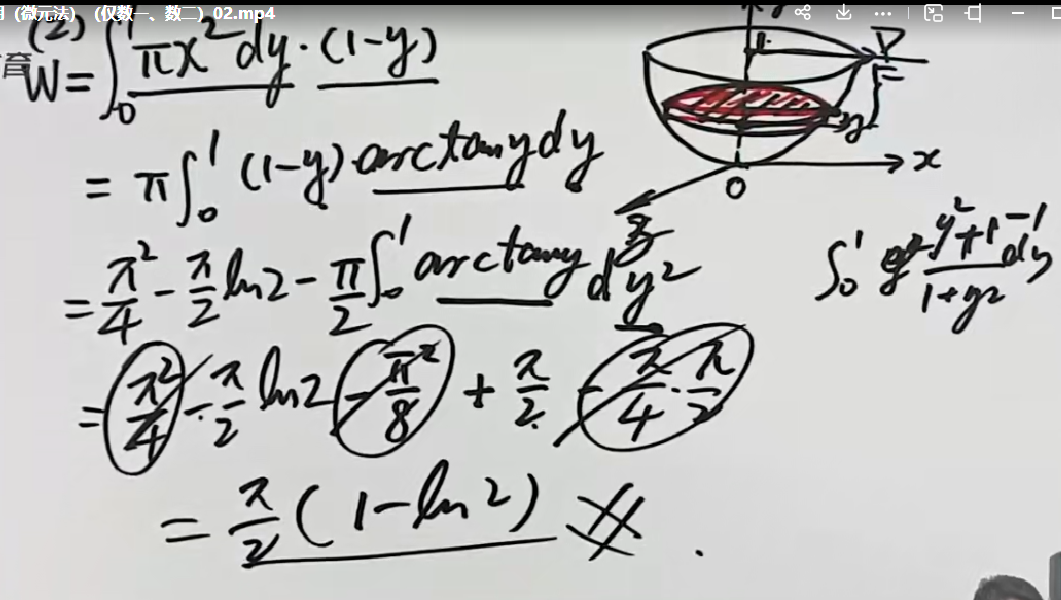 用（微元法）（仅数一、数二）_02.mp4
育
(2)
W = ∫₀¹ πx²dy · (1-y)
= π∫₀¹ (1-y) arctany dy
= π²/4 - π/2 ln2 - π/2 ∫₀¹ arctany dy²
= π²/4 - π/2 ln2 - π²/8 + π/2 - π/4 · π/2
= π/2 (1 - ln2)
1
y
x
O
∫₀¹ (y²+1-1)/(1+y²) dy